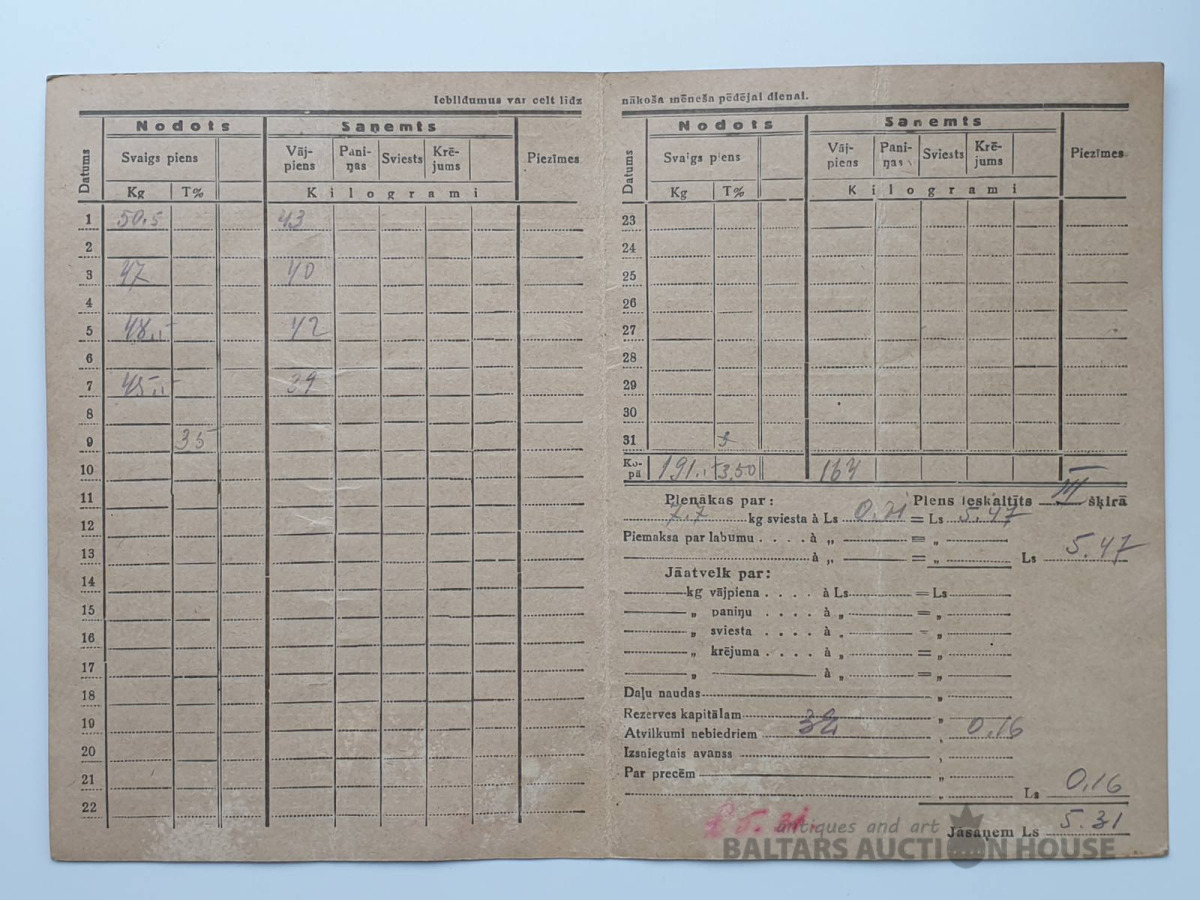 Iebildumus var celt līdz nākoša mēneša pēdējai dienai.
Nodots Saņemts
Datums Svaigs piens Vāj-piens Pani-ņas Sviests Krē-jums Piezīmes
Kg T% Kilogrami
1 50,5 43
2
3 47 40
4
5 48,5 42
6
7 45,5 39
8
9 35
10
11
12
13
14
15
16
17
18
19
20
21
22
Nodots Saņemts
Datums Svaigs piens Vāj-piens Pani-ņas Sviests Krē-jums Piezīmes
Kg T% Kilogrami
23
24
25
26
27
28
29
30
31
Ko-pā 191,5 3,50 164
Pienākas par: Piens ieskaitīts III šķirā
7.7 kg sviesta à Ls 0.71 = Ls 5.47
Piemaksa par labumu . . . . à „ = „
à „ = „ Ls 5.47
Jāatvelk par:
kg vājpiena . . . . à Ls = Ls
„ paniņu . . . . à „ = „
„ sviesta . . . . à „ = „
„ krējuma . . . . à „ = „
„ à „ = „
Daļu naudas „
Rezerves kapitālam „
Atvilkumi nebiedriem „ 0,16
Izsniegtais avanss „
Par precēm „
„ Ls 0,16
Jāsaņem Ls 5.31
antiques and art
BALTARS AUCTION HOUSE